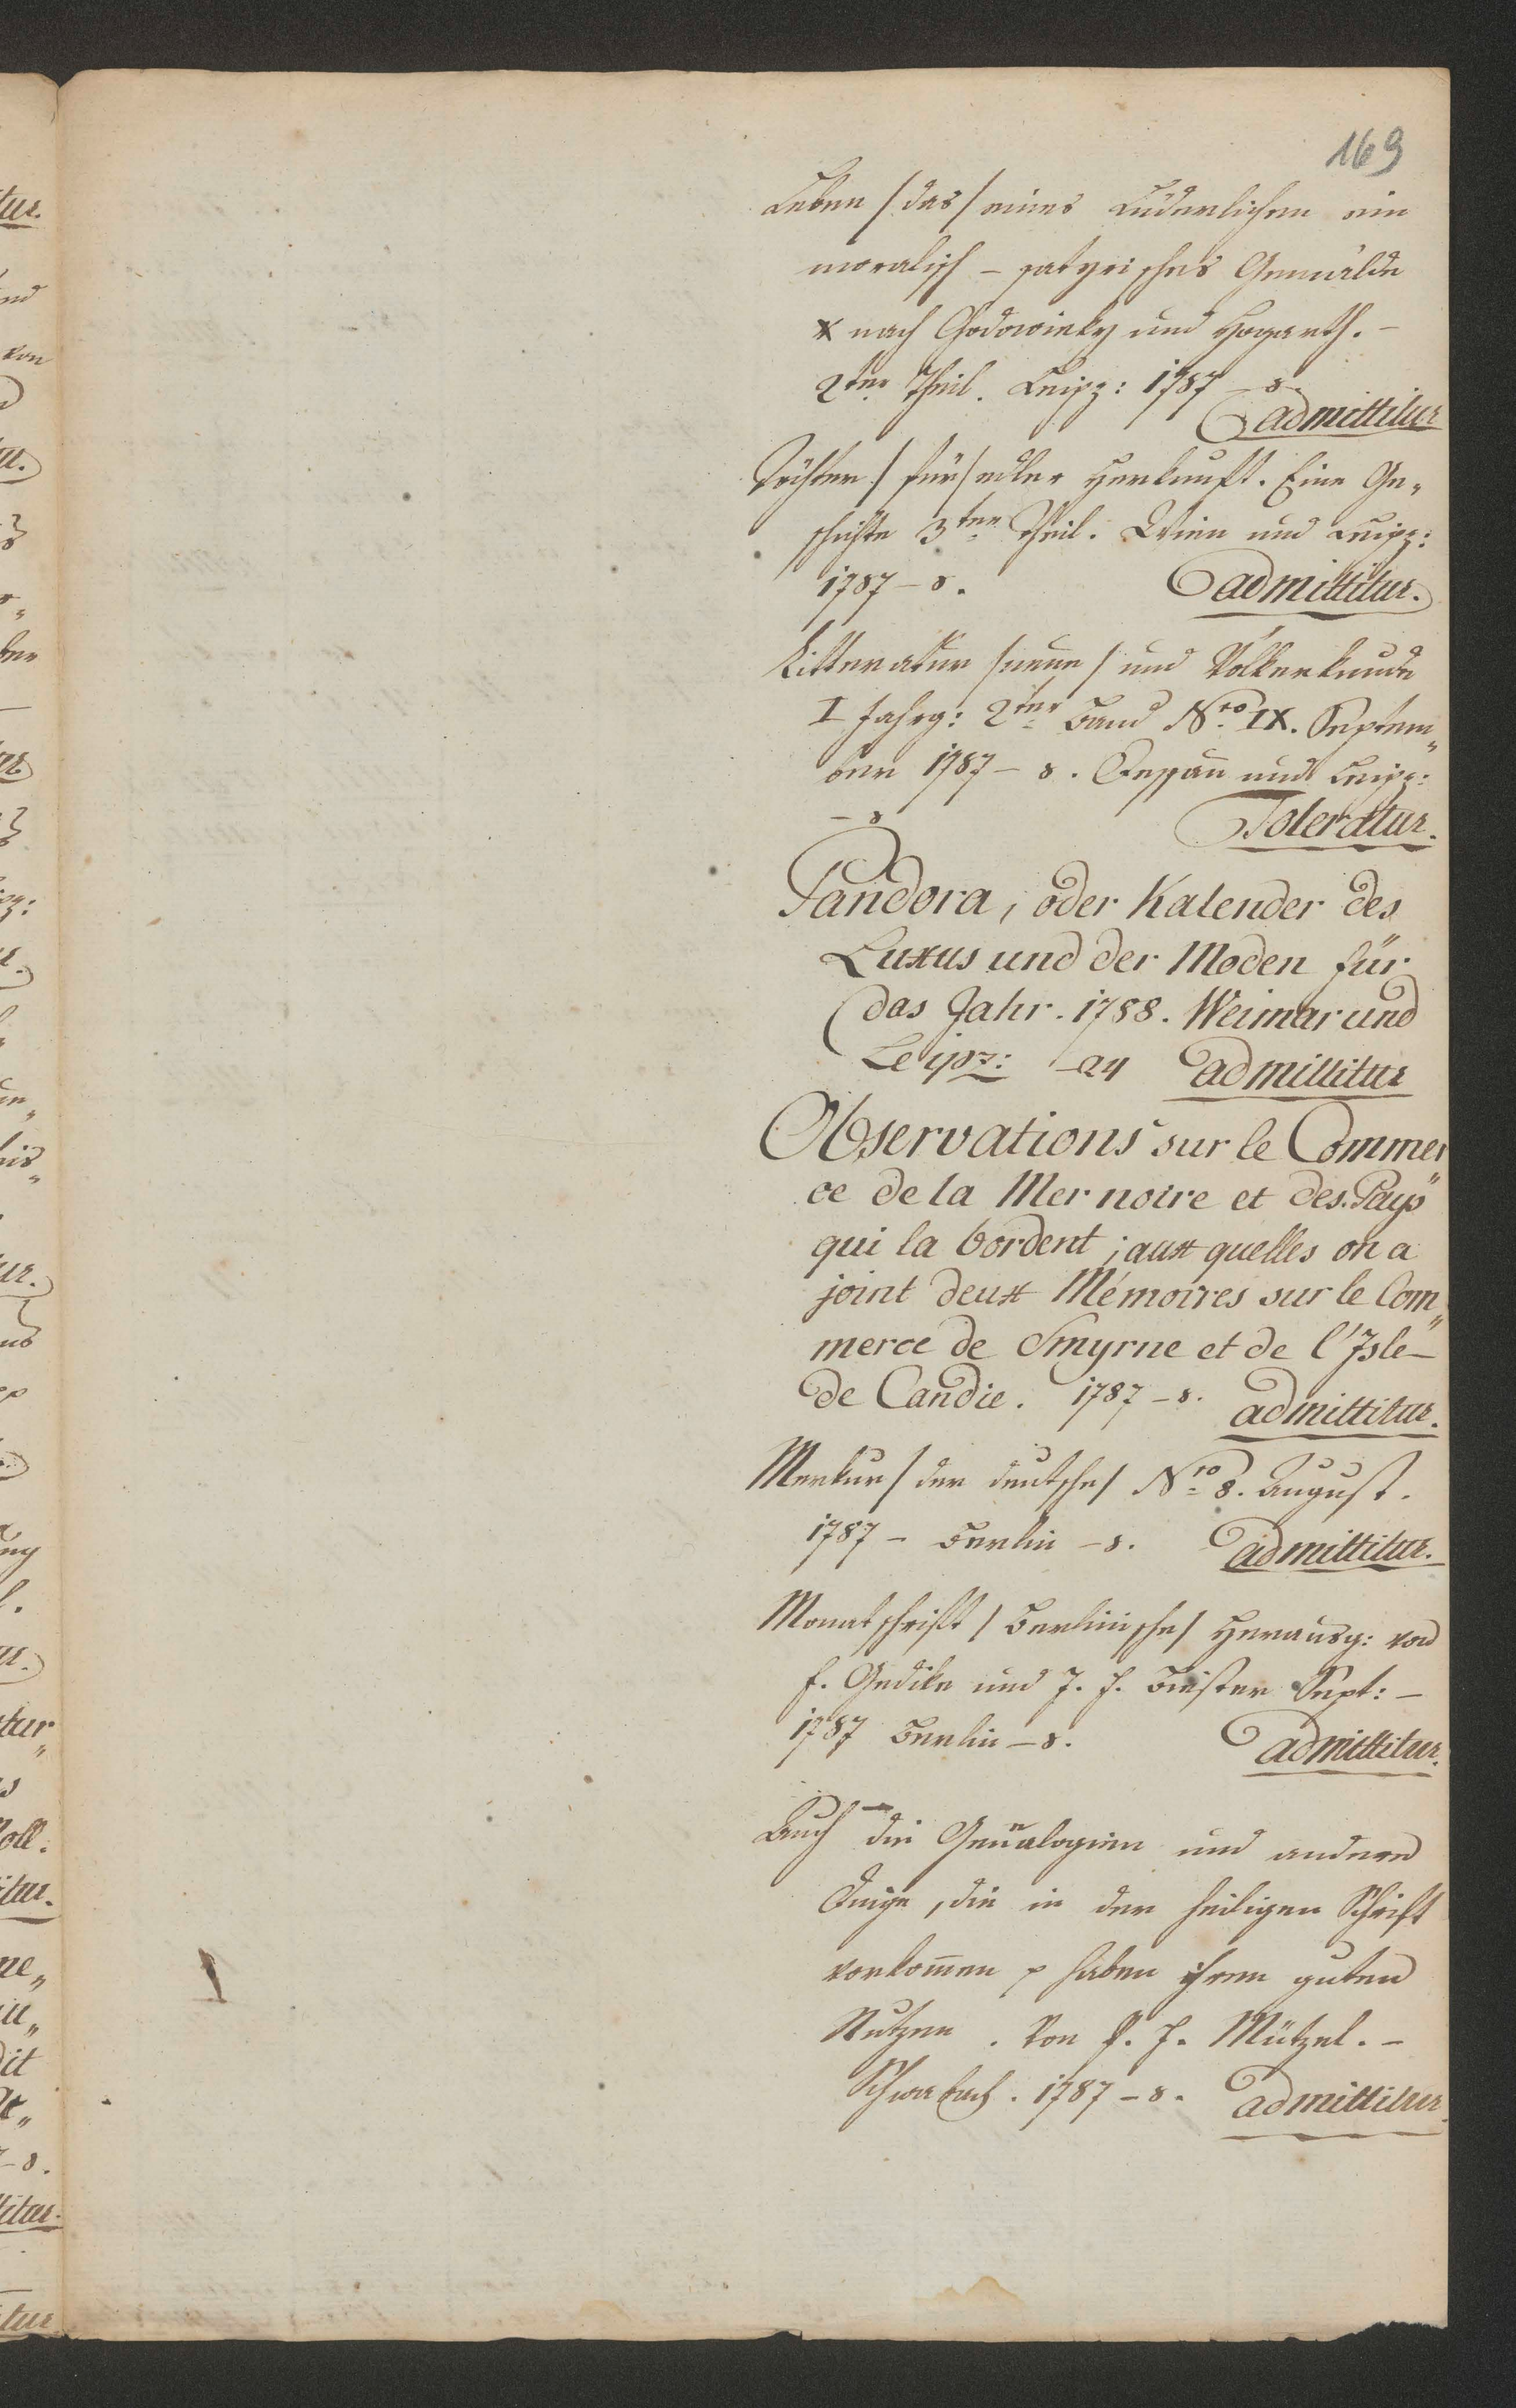 169
Leben /das/ eines Lüderlichen ein
moralisch - satyrisches Gemälde
nach Chodowieky und Hogarth. -
2ter Theil. Leipz: 1787 - 8.
admittitur
Töchter /für/ edler Herkunft. Eine Ge„
schichte 3ter Theil. Wien und Leipz:
1787 - 8. admittitur.
Litteratur /neue/ und Völkerkunde
I Jahrg: 2ter Band Nro IX. Septem„
ber 1787 - 8. Dessau und Leipz:
- 8 Toleratur.
Pandora, oder Kalender des
Luxus und der Moden für
das Jahr. 1788. Weimar und
Leipz: - 24 admittitur
Observations sur le Commer„
ce de la Mer noire et des Pays
qui la bordent; aux quelles on a
joint deux Mémoires sur le Com„
merce de Smyrne et de l'Isle -
de Candie. 1787 - 8. admittitur.
Merkur /der deutsche/ Nro 8. August.
1787 - Berlin - 8. admittitur.
Monatschrift /Berlinische/ Herausg: von
F. Gedike und J. E. Biester Sept: -
1787 Berlin - 8. admittitur.
Auch die Genealogien und andere
Dinge, die in der heiligen Schrift
vorkommen haben ihren guten
Nutzen. Von Mützel. -
Schwabach. 1787 - 8. admittitur